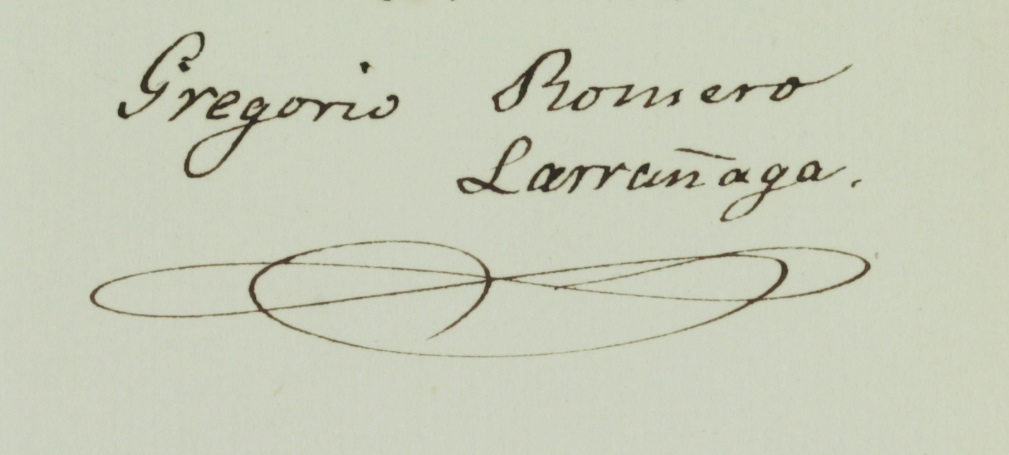 Gregorio Romero
Larrañaga.